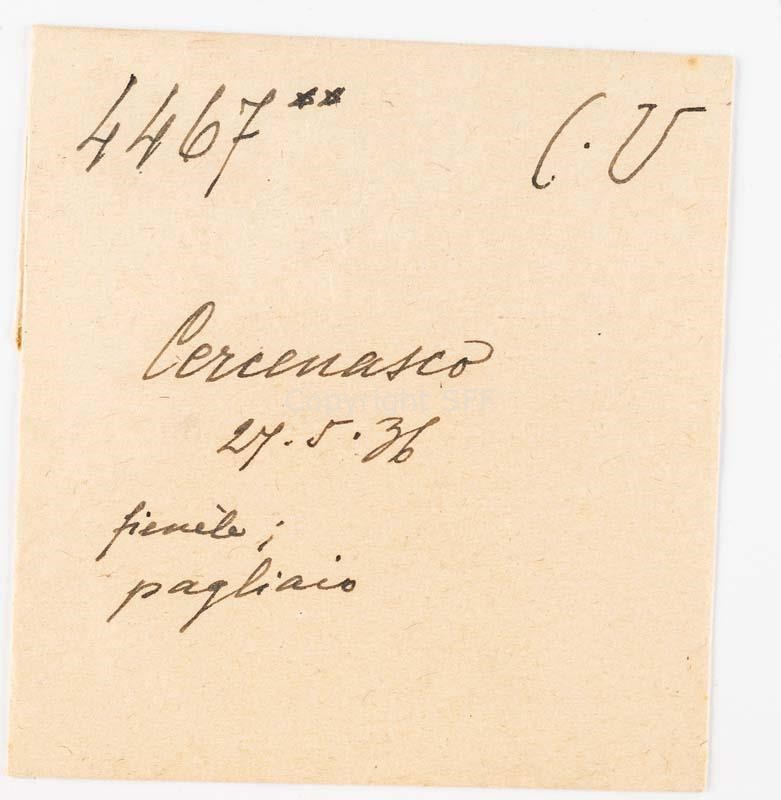 4467** C. V
Cercenasco
Copyright SFF
27.5.36
fienile;
pagliaio